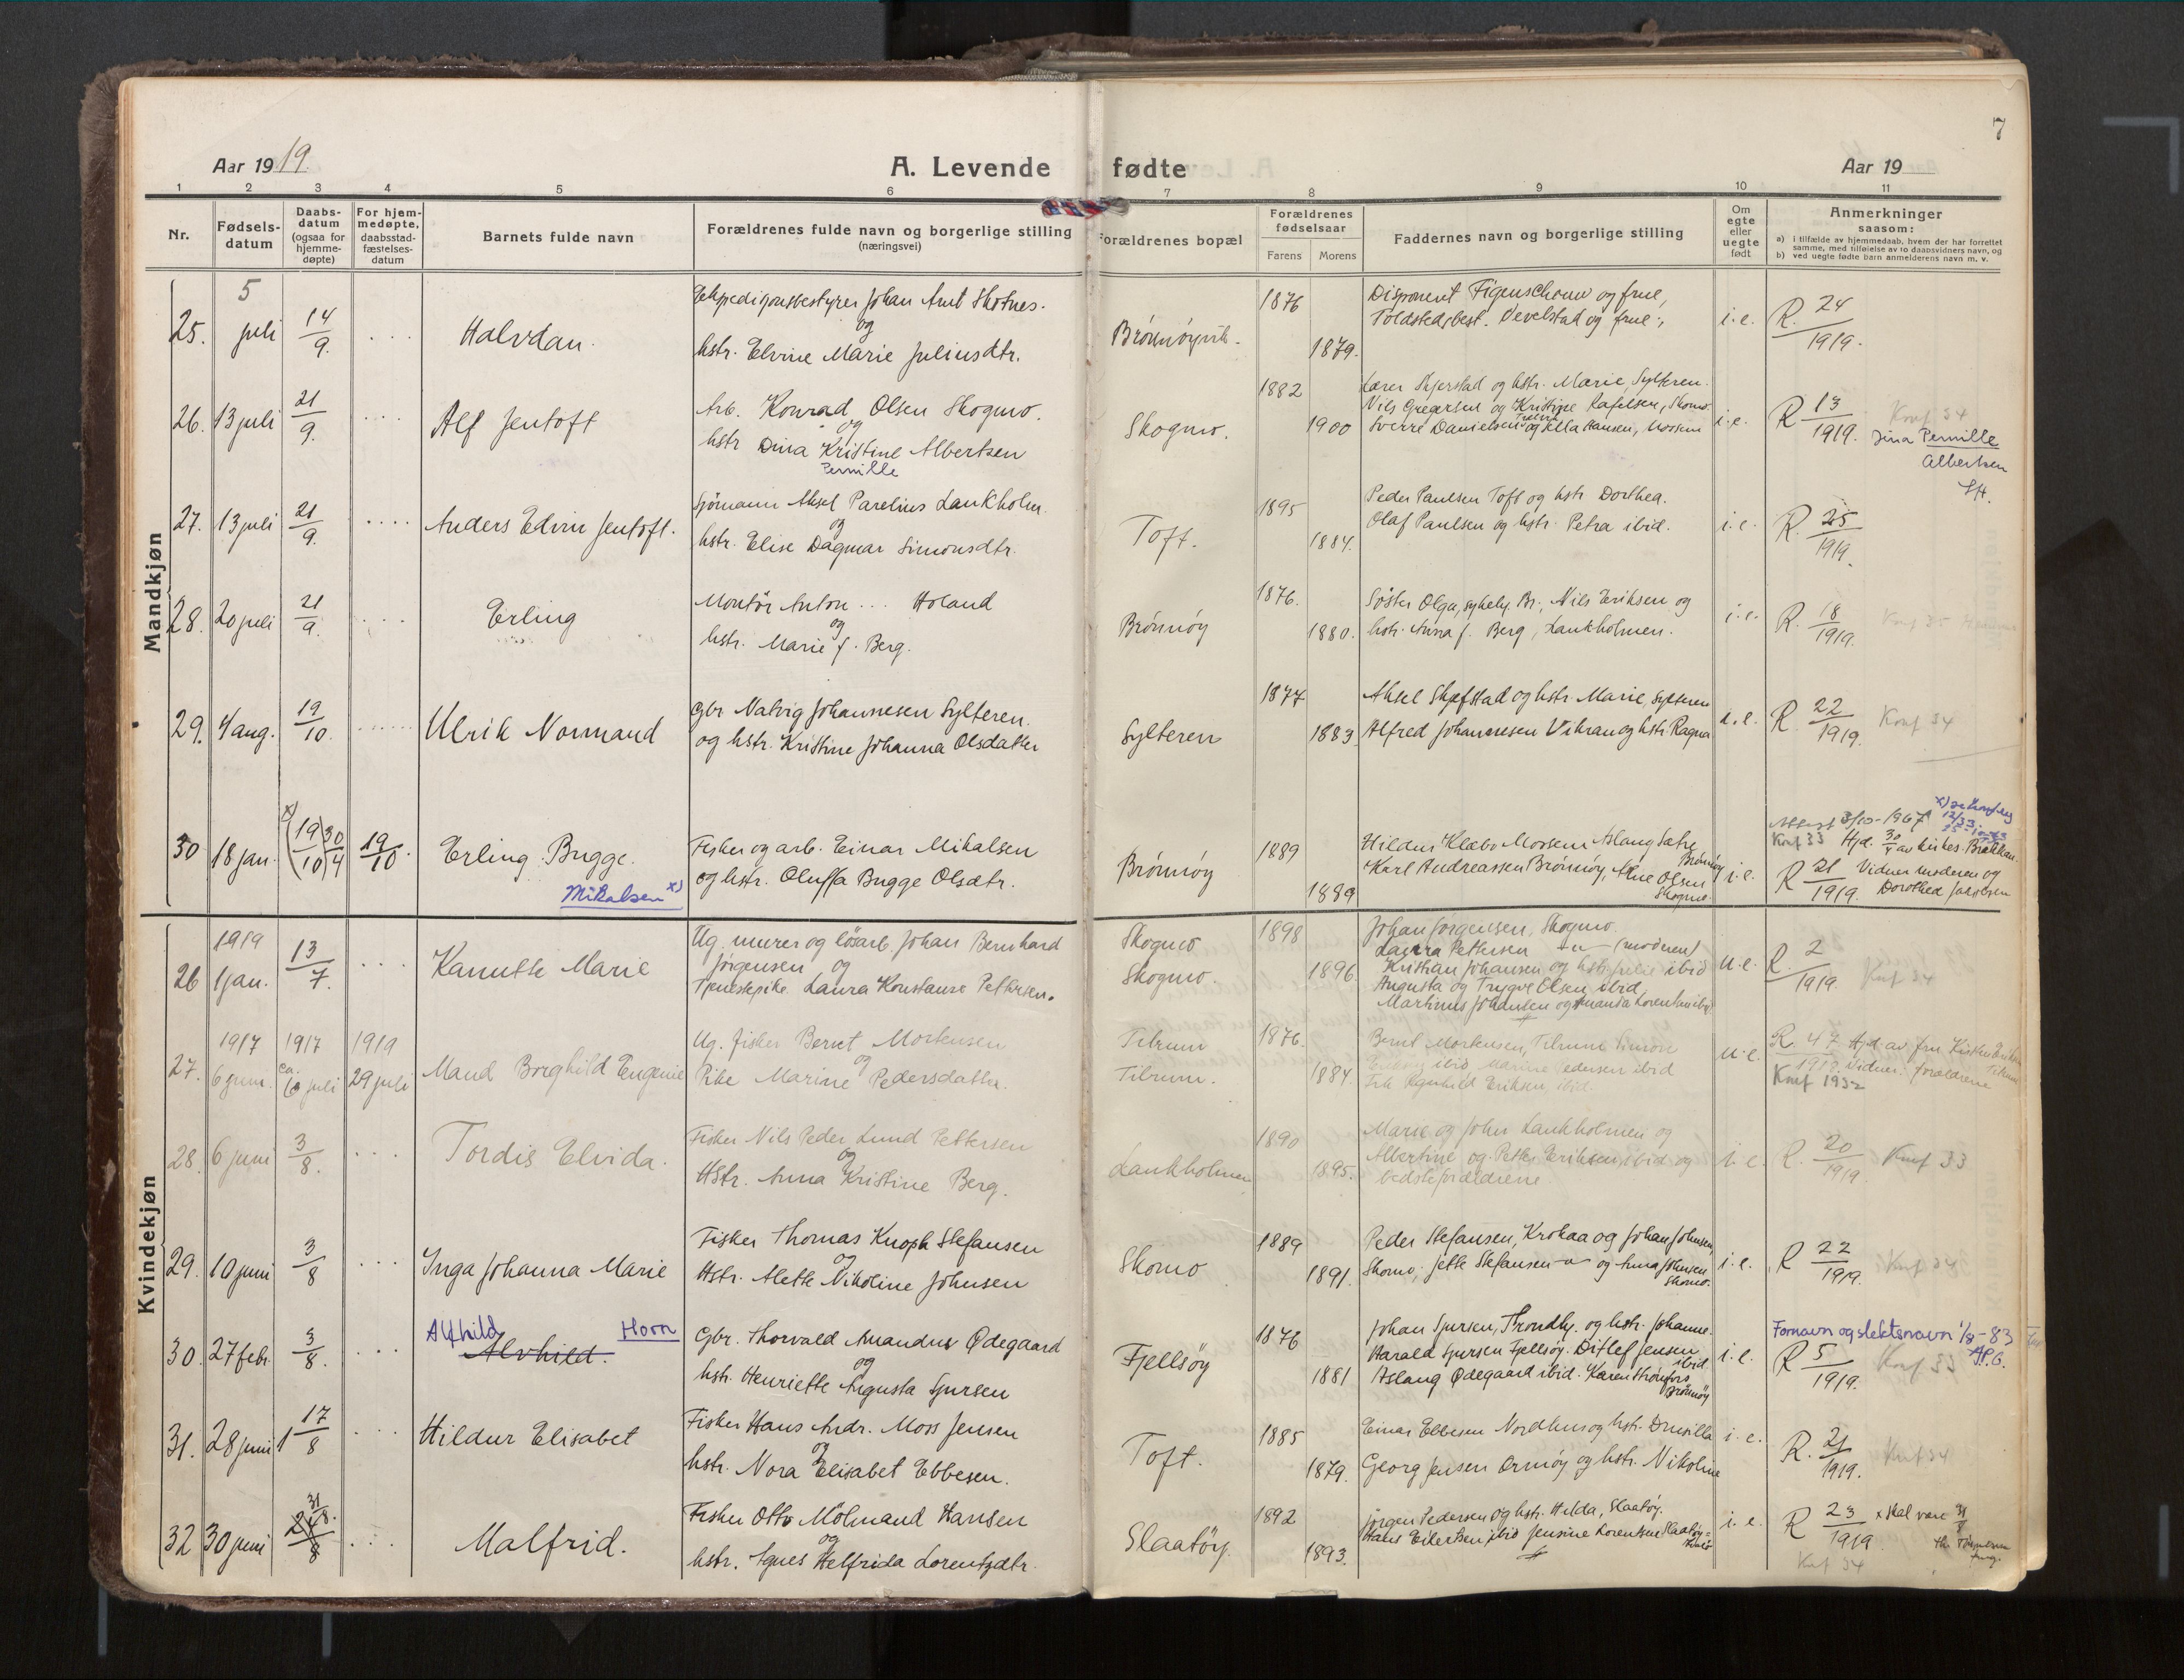 7
Aar 1919.
A. Levende fødte
Aar 19
1 2 3 4 5 6 7 8 9 10 11
Nr.
Fødsels-
datum
Daabs-
datum
(ogsaa for
hjemme-
døpte)
For hjem-
medøpte,
daabsstad-
fæstelses-
datum
Barnets fulde navn
Forældrenes fulde navn og borgerlige stilling
(næringsvei)
Forældrenes bopæl
Forældrenes
fødselsaar
Farens Morens
Faddernes navn og borgerlige stilling
Om
egte
eller
uegte
født
Anmerkninger
saasom:
a) i tilfælde av hjemmedaab, hvem der har forrettet
samme, med tilføielse av to daabsvidners navn, og
b) ved uegte fødte barn anmelderens navn m. v.
Mandkjøn
25. 5 juli 14/9. Halvdan.
Johan Arnt Skotnes.
og
hstr. Elvine Marie Juliusdtr.
1876 1879.
Disponent Figenschouw og frue,
Toldstedsbest. Develstad og frue
i.e. R. 24/1919.
26. 13 juli 21/9. Alf Jentoft
Arb. Konrad Olsen Skogmo.
og
hstr Dina Kristine Albertsen
Pernille
Skogmo. 1882 1900
Lærer Skjerstad og hstr. Marie, Sylteren.
Nils Gregersen og Kristine Rafelsen, Skomo
Sverre Danielsen og Hansen, Mosem
i.e. R 13/1919. Konf 34
Pernille
Albertsen
27. 13 juli 21/9. Anders Edvin Jentoft.
Sjömann Aksel Parelius Lankholm.
og
hstr. Elise Dagmar Simonsdtr.
Toft. 1895 1884.
Peder Paulsen Toft og hstr Dorthea.
Olaf Paulsen og hstr. Petra ibid.
i.e. R. 25/1919.
28. 20 juli 21/9. Erling
Montör Anton ... Holand
og
hstr. Marie f. Berg.
Brönnöy 1876. 1880.
Söster Olga, sykehj. Br., Nils Eriksen og
hstr. Anna f. Berg, Lankholmen.
i.e. R. 18/1919. Konf 35
29. 4 aug. 19/10. Ulrik Normand
Gbr Natvig Johannesen Sylteren.
og hstr. Kristine Johanna Olsdatter
Sylteren 1877 1883
Aksel Skjefstad og hstr. Marie, Sylteren
Alfred Johannesen Vikran og hstr. Ragna
i.e. R 22/1919. Konf 34
30 18 jan. x) (19/10) 30/4 19/10. Erling Bugge.
Mikalsen x)
Fisker og arb. Einar Mikalsen
og hstr. Oluffa Bugge Olsdtr.
Brönnöy 1889 1889
Hildur Klæbo Mosem Aslaug Sætre
Brönnöy
Karl Andreassen Brönnöy, Arne Olsen
Skogmo.
i.e.
Attest 3/10-1967
Konf 33 Hjd. 30/4 av kirkes. Brækkan.
R 21/1919. Vidner moderen og
Dorothea Jakobsen
Kvindekjøn
26 1919 1 jan. 13/7. Kanutte Marie
Ug. murer og lösarb. Johan Bernhard
Jörgensen og
Tjenestepike Laura Konstanse Pettersen.
Skogmo
Skogmo. 1898 1896
Johan Jörgensen, Skogmo.
Laura Pettersen —"— (moderen)
Kristian Johansen og hstr. ibid
Augusta og Trygve Olsen ibid,
Martinus Johansen og Amanda Lorentsen ibid.
u.e. R. 2/1919. Konf 34
27. 1917 6 juni. 1917 ca. 10 juli 1919 29 juli Maud Borghild Eugenie
Ug. fisker Bernt Mortensen
og
Pike Marine Pedersdatter.
Tilrum
Tilrum. 1876. 1884.
Bernt Mortensen, Tilrum Simon
ibid, Marine Pedersen ibid
Eriksen, ibid.
u.e. R. 47 Hjd av fru Eriksen
1918. Vidner. forældrene
Konf 1932
28. 6 juni 3/8. Tordis Elvida.
Fisker Nils Peder Lund Pettersen
og
Hstr. Anna Kristine Berg.
Lankholmen 1890 1895.
Marie og John Lankholmen og
Albertine og Petter Eriksen, ibid og
bedsteforældrene.
i.e. R. 20/1919. Konf 33
29. 10 juni 3/8 Inga Johanna Marie
Fisker Thomas Knoph Stefansen
og
Hstr. Alette Nikoline Johnsen
Skomo 1889 1891.
Peder Stefansen, Krokaa og Johan Johnsen,
Skomo, Jette Stefansen —"— og Anna Johnsen
Skomo.
i.e. R 22/1919. Konf 34
30. 27 febr. 3/8. Alfhild Horn
Alvhild.
Gbr. Thorvald Amandus Ødegaard
og
hstr. Henriette Augusta Sjursen
Fjellsöy 1876 1881
Johan Sjursen, Trondhj. og hstr. Johanne.
Harald Sjursen Fjellsöy. Ditlef Jensen
ibid
Aslaug Ødegaard ibid. Karen Strömfors
Brönnöy
i.e. Fornavn og slektsnavn 1/8-83
R 5/1919. Konf 33
31. 28 juni 17/8 Hildur Elisabet
Fisker Hans Andr. Moss Jensen
og
hstr. Nora Elisabet Ebbesen.
Toft. 1885 1879.
Einar Ebbesen Nordhus og hstr. Drusilla
Georg Jensen Ormöy og hstr. Nikoline
i.e. R. 21/1919. Konf 34
32 30 juni 31/8. 24/8 Malfrid.
Fisker Otto Mölmand Hansen
og
hstr. Agnes Helfrida Lorentzdtr.
Slaatöy. 1892 1893.
Jörgen Pedersen og hstr. Hilda, Slaatöy.
Hans Eilertsen ibid Jensine Lorentsen Slaatöy
i.e. R 23/1919. x skal være 31/8
Konf 34